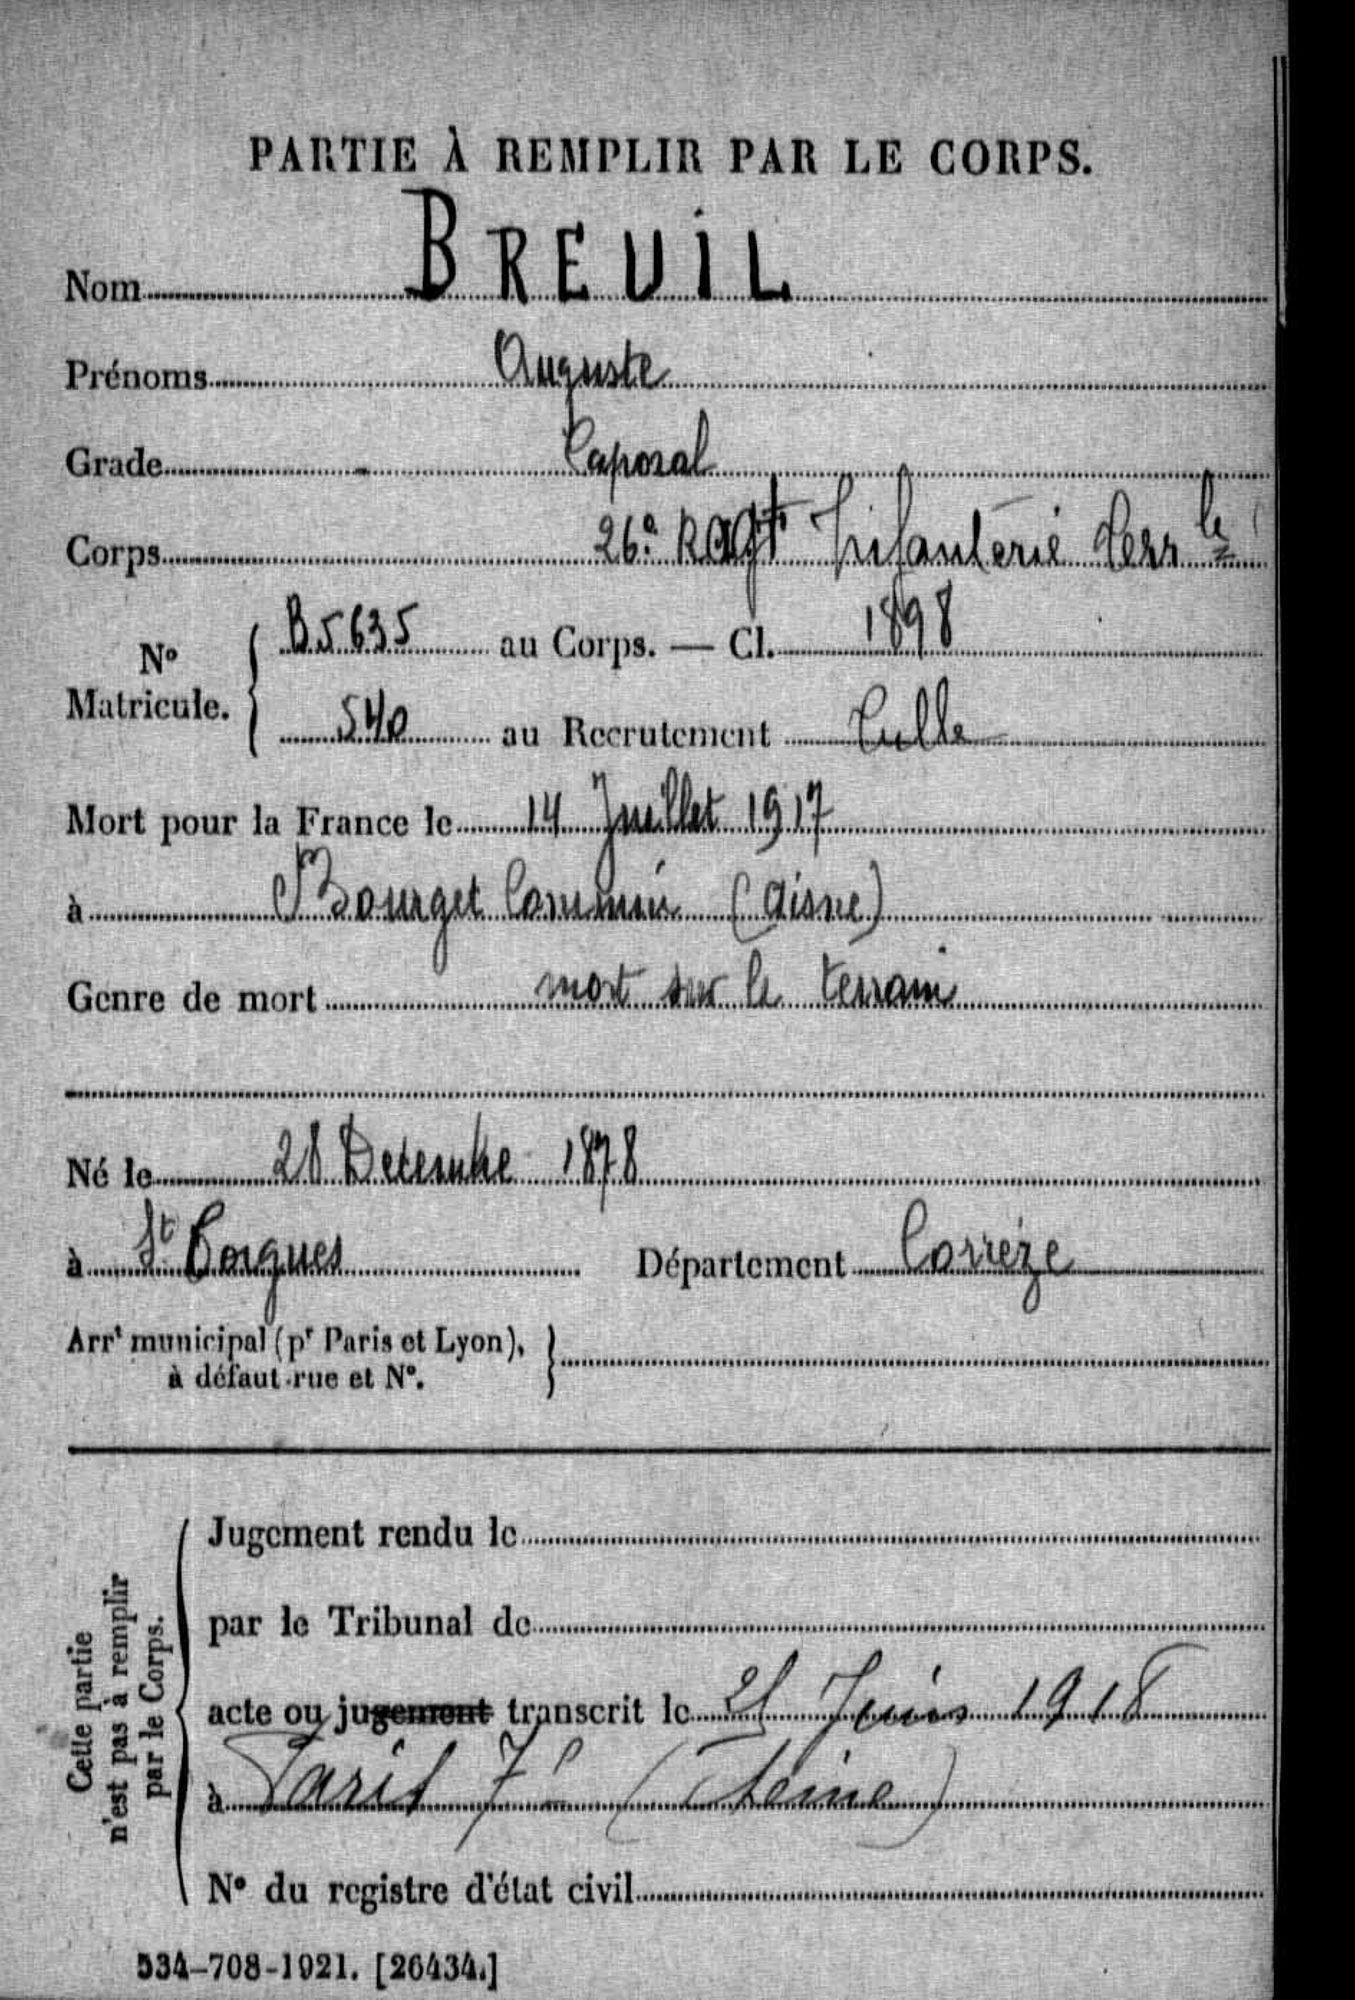 PARTIE À REMPLIR PAR LE CORPS.
Nom BREUIL
Prénoms Auguste
Grade Caporal
Corps 26e Ragt Infanterie Terr le
N° Matricule. B5635 au Corps. — Cl. 1898
540 au Recrutement Tulle
Mort pour la France le 14 Juillet 1917
à Bourget Commin (Aisne)
Genre de mort mort sur le terrain
Né le 28 Decembre 1878
à St Borgues Département Corrèze
Arrt municipal (pr Paris et Lyon), à défaut rue et N°.
Cette partie n'est pas à remplir par le Corps.
Jugement rendu le
par le Tribunal de
acte ou jugement transcrit le 21 Juin 1918
à Paris 7e (Seine)
N° du registre d'état civil
534-708-1921. [26434.]